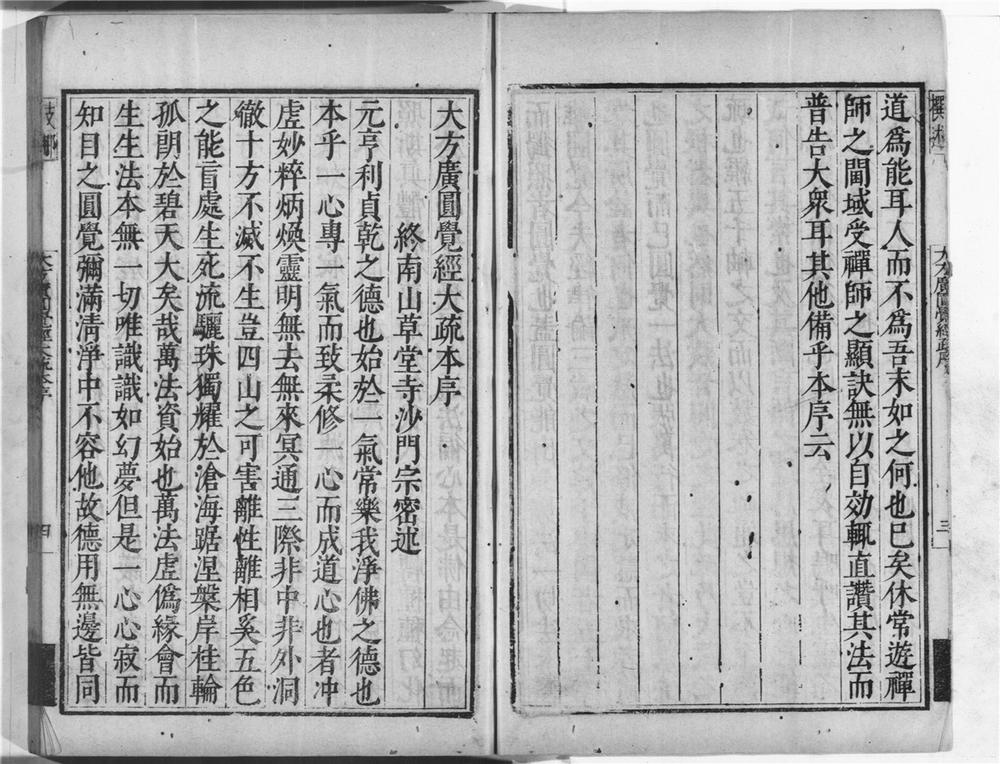 道爲能耳人而不爲吾末如之何也已矣休常遊禪
師之閫域受禪師之顯訣無以自効輒直讚其法而
普告大衆耳其他備乎本序云
大方廣圓覺經大疏本序
終南山草堂寺沙門宗密述
元亨利貞乾之德也始於一氣常樂我淨佛之德也
本乎一心專一氣而致柔修一心而成道心也者冲
虛妙粹炳煥靈明無去無來冥通三際非中非外洞
徹十方不滅不生豈四山之可害離性離相奚五色
之能盲處生死流驪珠獨耀於滄海踞涅槃岸桂輪
孤朗於碧天大矣哉萬法資始也萬法虛僞緣會而
生生法本無一切唯識識如幻夢但是一心心寂而
知目之圓覺彌滿清淨中不容他故德用無邊皆同
撰述
大方廣圓覺經疏序
三
大方廣圓覺經大疏本序
四